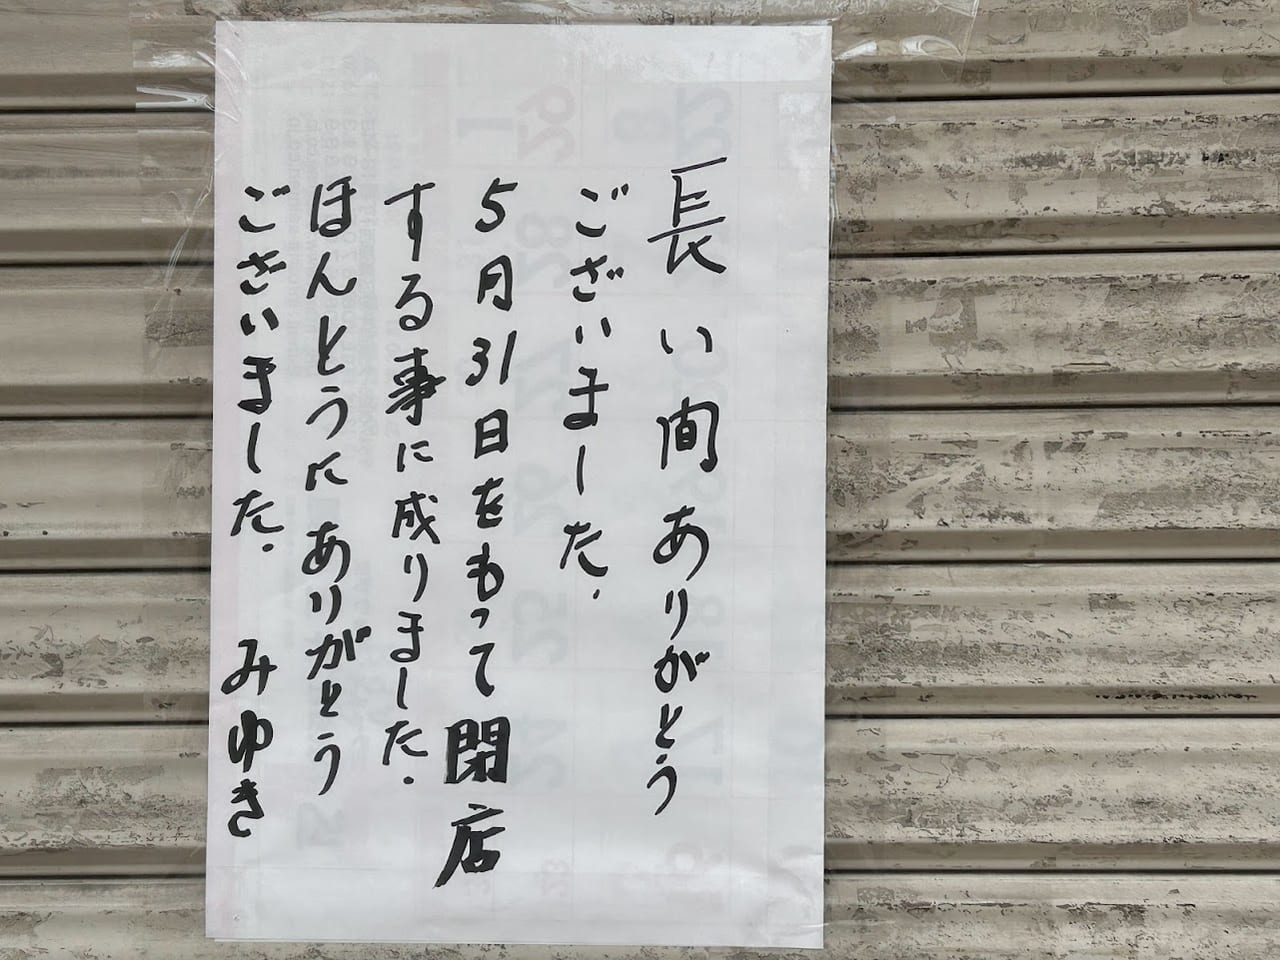 長い間ありがとう
ございました.
5月31日をもって閉店
する事に成りました.
ほんとうにありがとう
ございました. みゆき